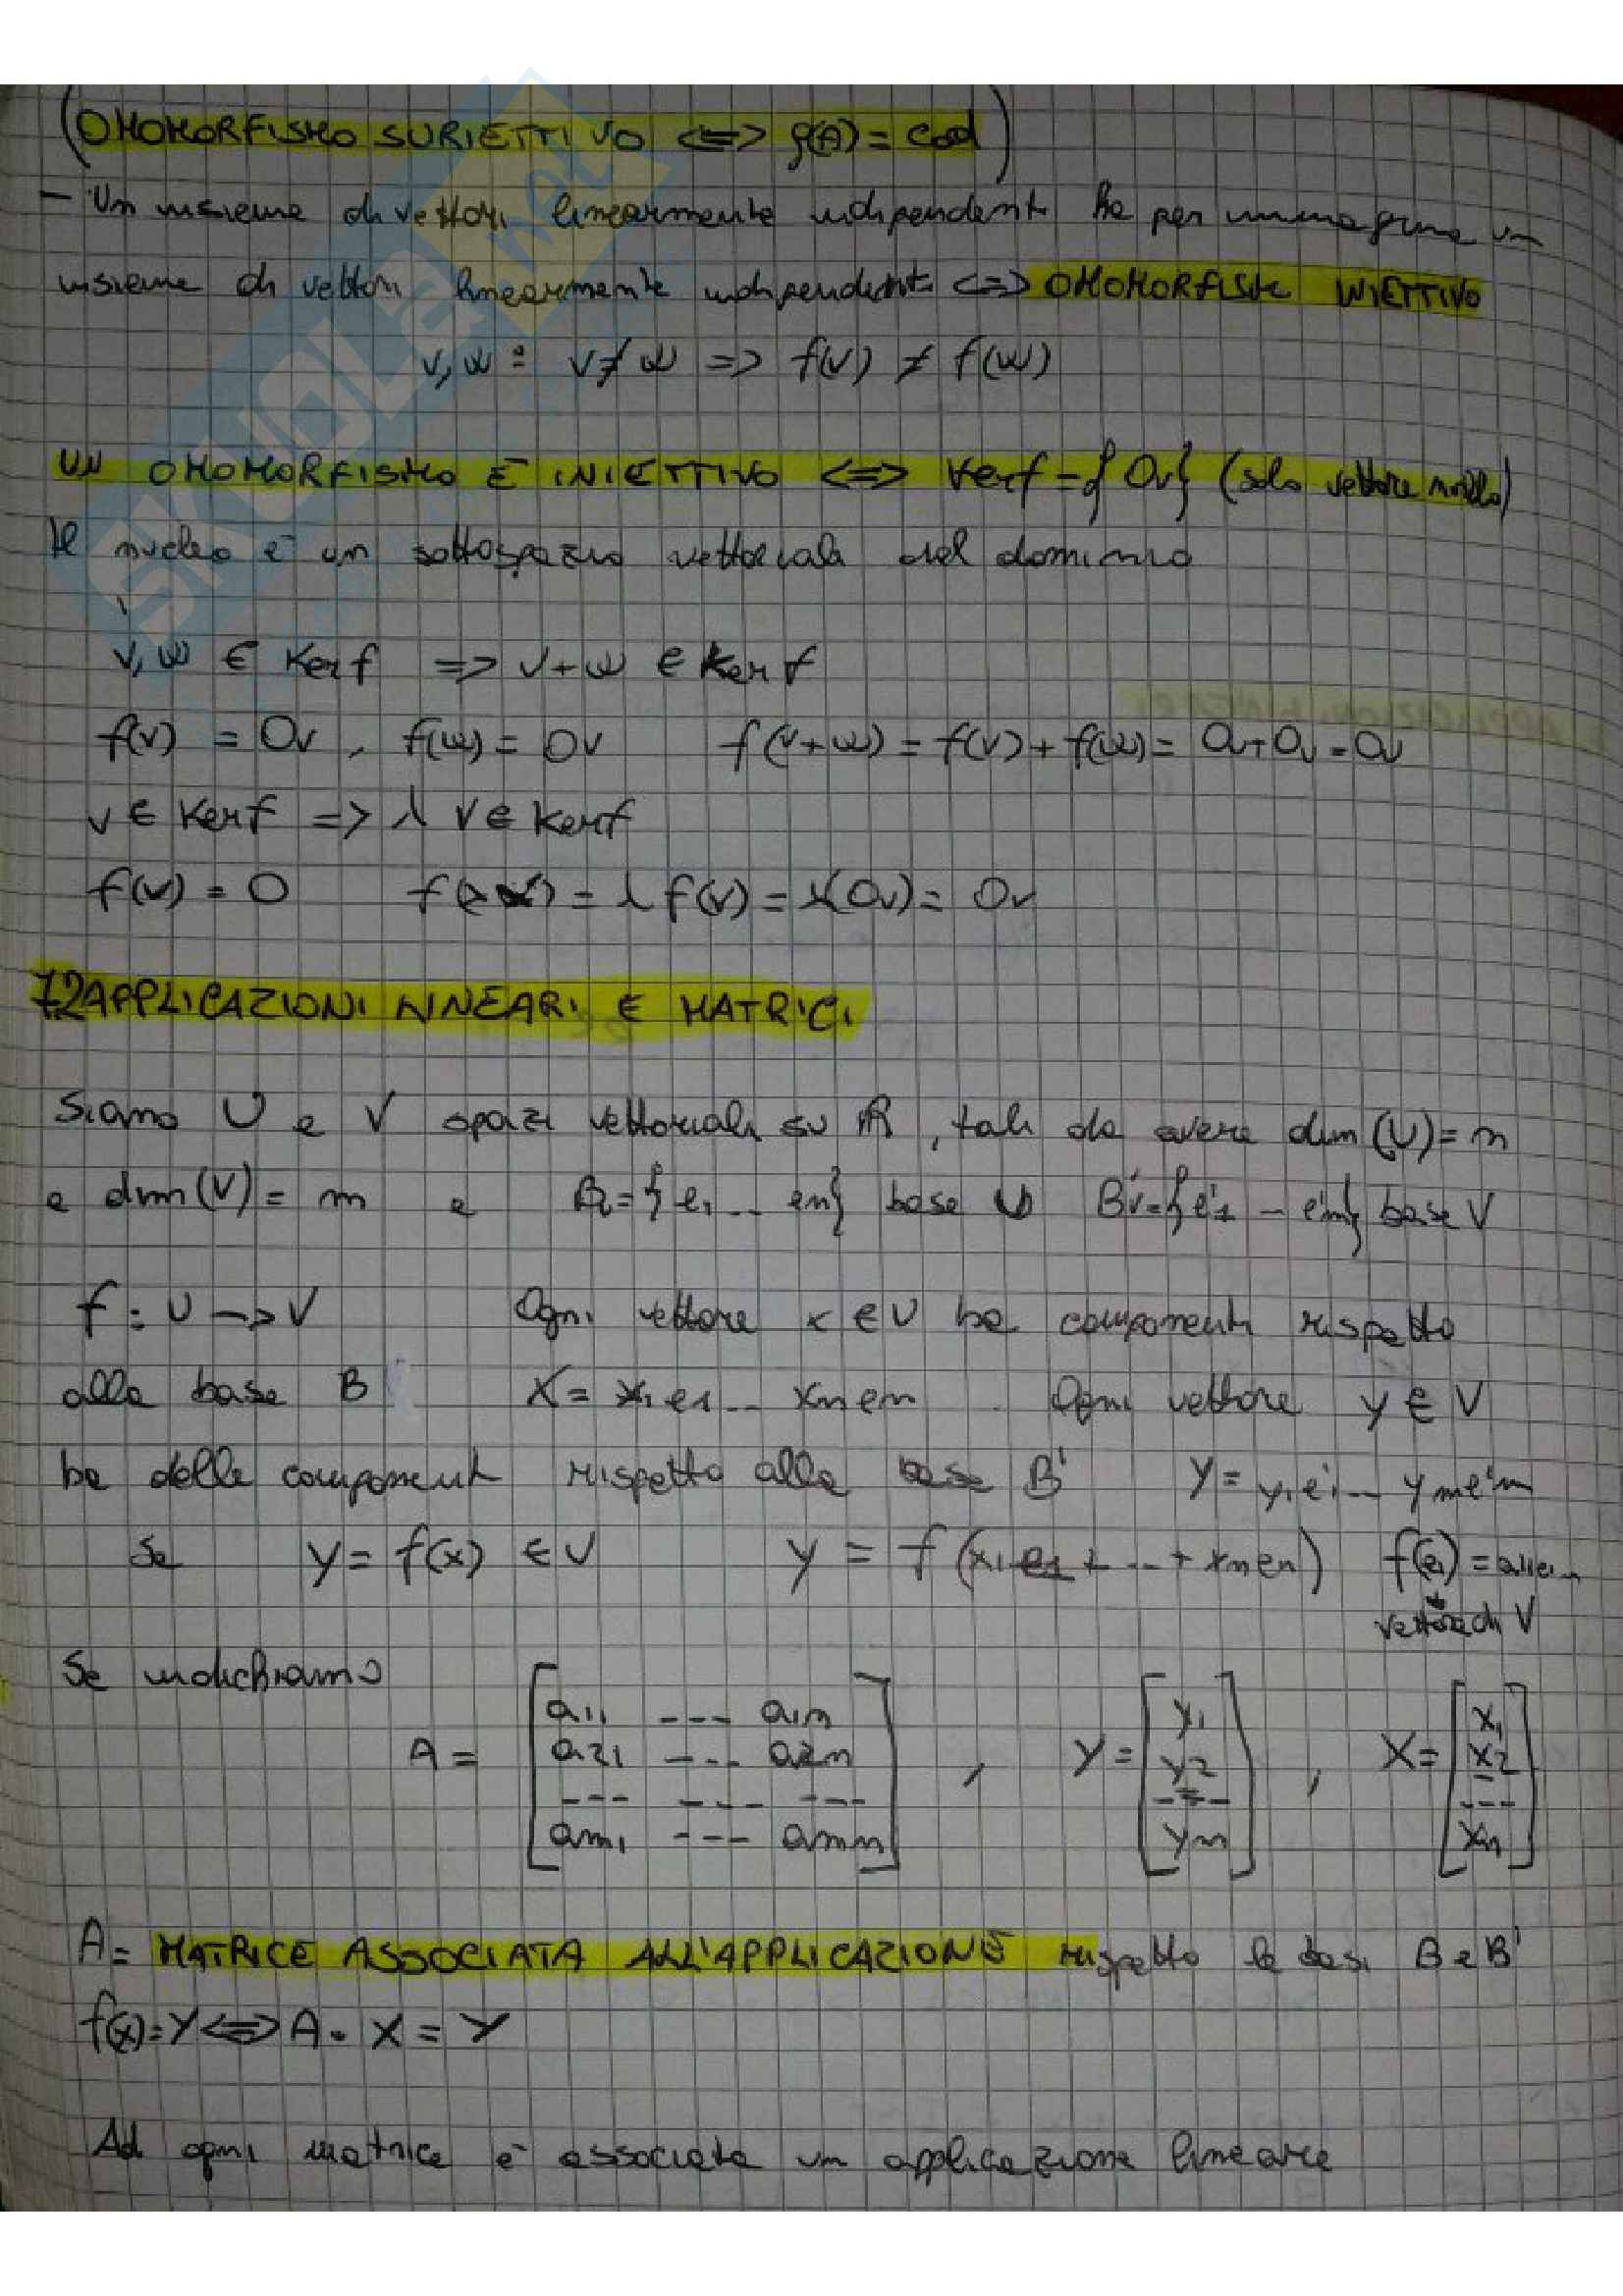 (OMOMORFISMO SURIETTIVO <=> f(A) = Cod)
- Un insieme di vettori linearmente indipendenti ha per immagine un
insieme di vettori linearmente indipendenti <=> OMOMORFISMO INIETTIVO
v, w : v ≠ w => f(v) ≠ f(w)
UN OMOMORFISMO È INIETTIVO <=> Kerf = {0v} (solo vettore nullo)
Il nucleo è un sottospazio vettoriale del dominio
v, w ∈ Kerf => v + w ∈ Kerf
f(v) = 0v , f(w) = 0v f(v+w) = f(v) + f(w) = 0v + 0v = 0v
v ∈ Kerf => λ v ∈ Kerf
f(v) = 0 f(λv) = λ f(v) = λ(0v) = 0v
7.2 APPLICAZIONI LINEARI E MATRICI
Siano U e V spazi vettoriali su R, tali da avere dim (U) = n
e dim (V) = m e B = {e1 ... en} base U B'v = {e'1 - e'm} base V
f : U -> V Ogni vettore x ∈ U ha componenti rispetto
alla base B X = x1 e1 ... xn en . Ogni vettore y ∈ V
ha delle componenti rispetto alla base B' Y = y1 e'1 ... y m e'm
Se y = f(x) ∈ V y = f (x1 e1 + ... + xn en) f(e1) = a11e1..
vettore di V
Se indichiamo
A = [a11 --- a1n , Y = [y1 , X = [x1
a21 --- a2n y2 x2
--- --- --- --- ---
am1 --- amn] ym] xn]
A = MATRICE ASSOCIATA ALL'APPLICAZIONE rispetto le basi B e B'
f(x) = Y <=> A · X = Y
Ad ogni matrice è associata un applicazione lineare
SKUOLA.net